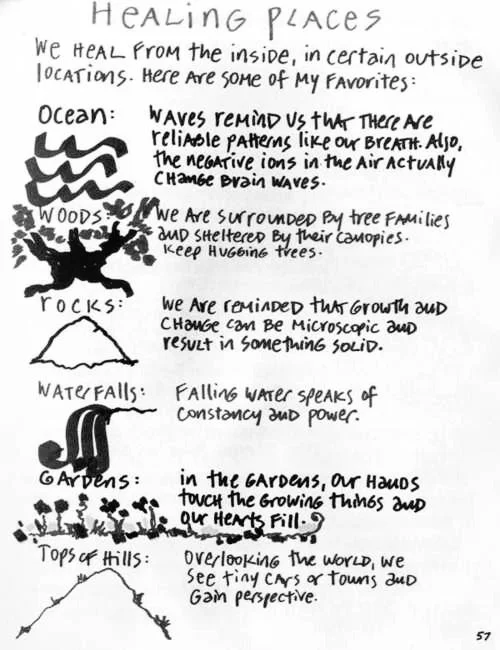 HEALING PLACES
We HEAL From the inside, in certain outside
locations. Here Are some of My Favorites:
Ocean:
WAVes remind us that There Are
reliable patterns like our Breath. Also,
the negative ions in the Air Actually
Change Brain Waves.
WOODS:
We Are surrounded By tree Families
and sheltered By their canopies.
Keep Hugging trees.
rocks:
We Are reminded that Growth and
Change can Be Microscopic and
result in something solid.
Waterfalls:
Falling Water speaks of
Constancy and power.
Gardens:
in the Gardens, Our Hands
touch the Growing things and
Our Hearts Fill.
Tops of Hills:
Overlooking the world, we
See tiny Cars or towns and
Gain perspective.
57